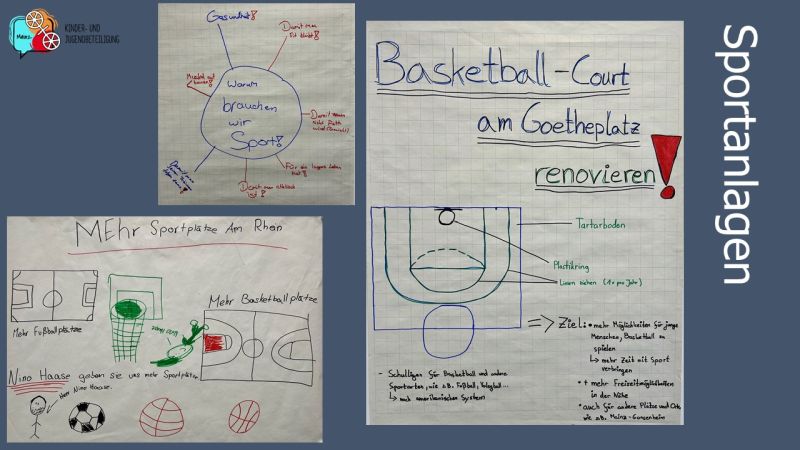 Mainz
KINDER- UND
JUGENDBETEILIGUNG
Sportanlagen
Gesundheit!
Damit man
fit bleibt!
Warum
brauchen
wir
Sport?
Muskel auf
Damit man
nicht Fett
wird
Für ein langes Leben
hat!
Damit man
ist!
MEhr Sportplätze Am Rhein
Mehr Fußballplätze
Mehr Basketballplätze
Nino Haase geben sie uns mehr Sportplätze
Herr Nino Haase
Basketball-Court
am Goetheplatz
renovieren!
Tartarboden
Plastikring
Linien ziehen (1x pro Jahr)
=> Ziel: • mehr Möglichkeiten für junge
Menschen, Basketball zu
spielen
↳ mehr Zeit mit Sport
verbringen
• + mehr Freizeitmöglichkeiten
in der Nähe
• auch für andere Plätze und Orte,
wie z.B. Mainz-Gonsenheim
- Schulligen für Basketball und andere
Sportarten, wie z.B. Fußball, Volleyball...
↳ nach amerikanischen System